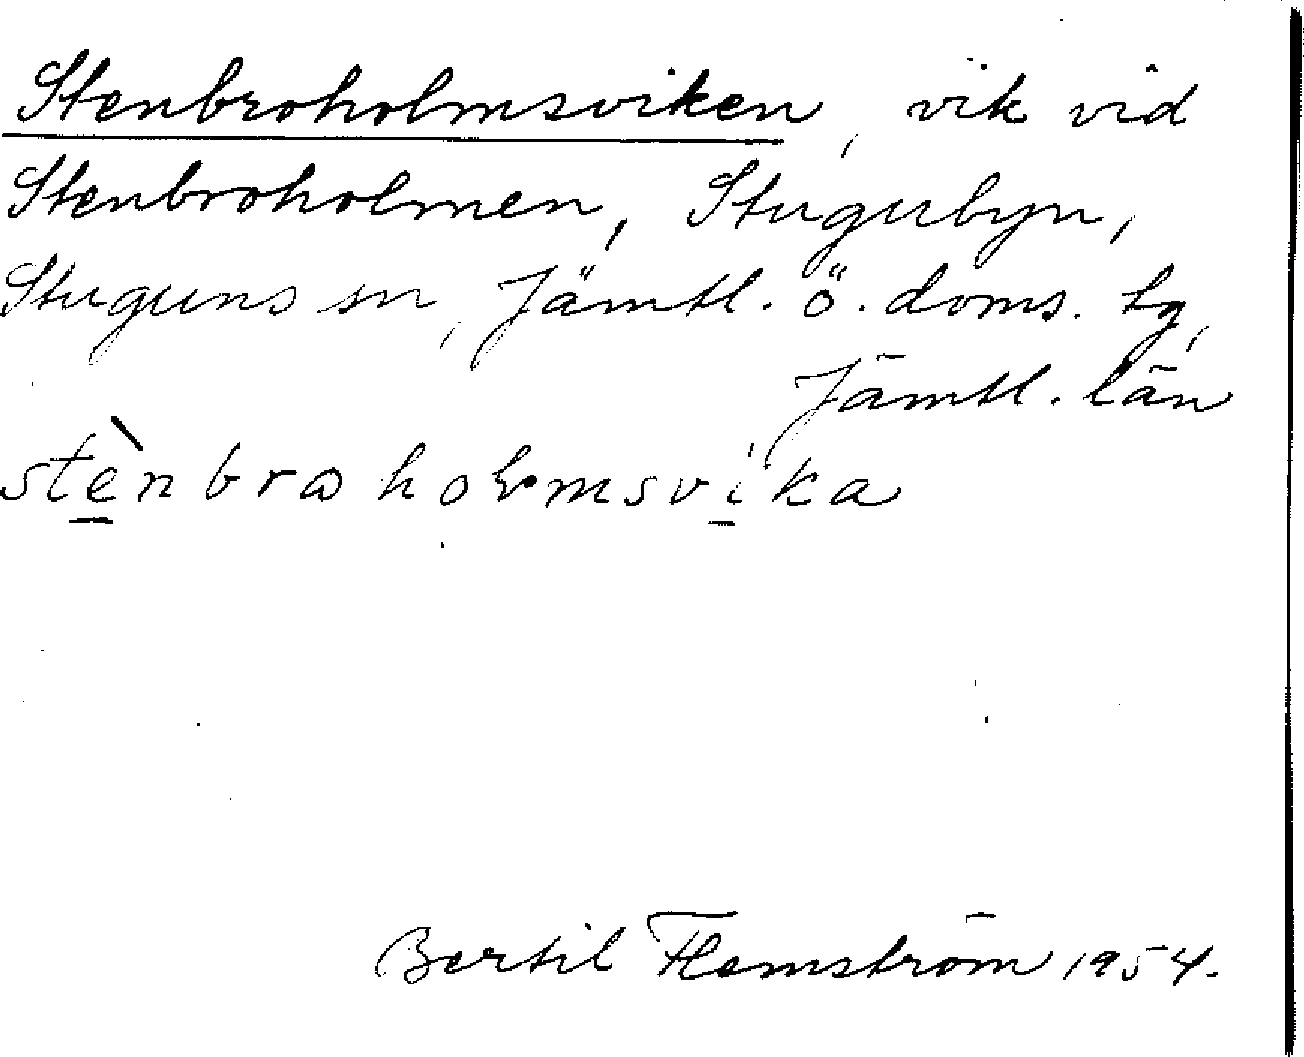 Stenbroholmsviken, vik vid
Stenbroholmen, Stugubyn,
Stuguns sn, Jämtl. ö. doms. tg,
Jämtl. län
stènbroholmsvika
Bertil Flemström 1954.